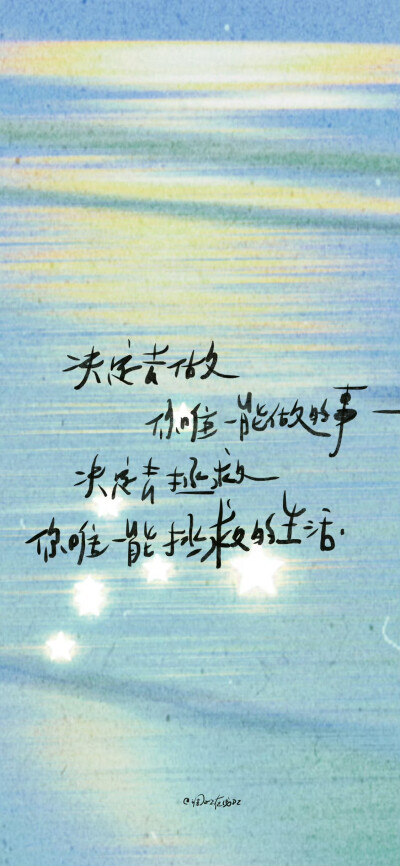 决定去做
你唯一能做的事一
决定去拯救
你唯一能拯救的生活.